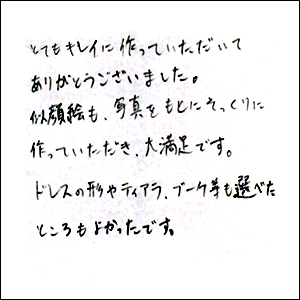 とてもキレイに作っていただいて
ありがとうございました。
似顔絵も、写真をもとにそっくりに
作っていただき、大満足です。
ドレスの形やティアラ、ブーケ等も選べた
ところもよかったです。